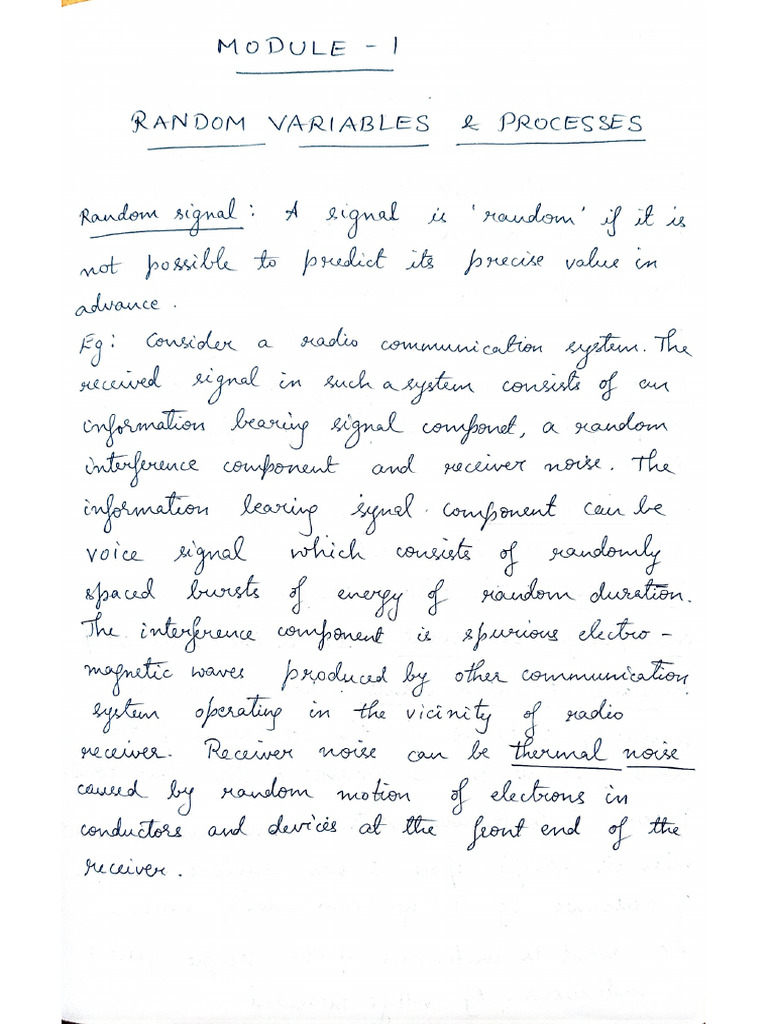 MODULE - 1
RANDOM VARIABLES & PROCESSES
Random signal : A signal is 'random' if it is
not possible to predict its precise value in
advance.
Eg: Consider a radio communication system. The
received signal in such a system consists of an
information bearing signal componet, a random
interference component and receiver noise. The
information bearing signal component can be
voice signal which consists of randomly
spaced bursts of energy of random duration.
The interference component is spurious electro -
magnetic waves produced by other communication
system operating in the vicinity of radio
receiver. Receiver noise can be thermal noise
caused by random motion of electrons in
conductors and devices at the front end of the
receiver.